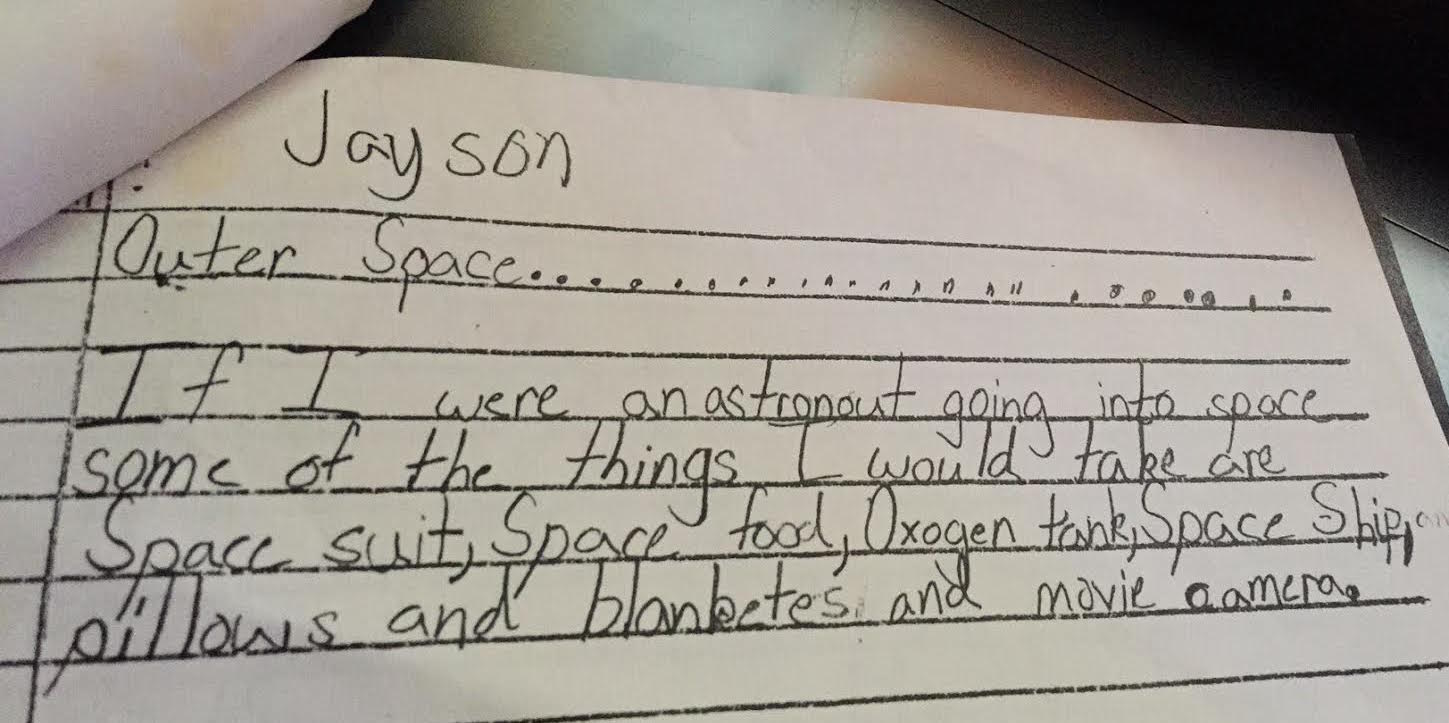 Jayson
Outer Space........................
If I were an astronout going into space
some of the things I would take are
Space suit, Space food, Oxogen tank, Space Ship,
pillows and blanketes and movie camera.